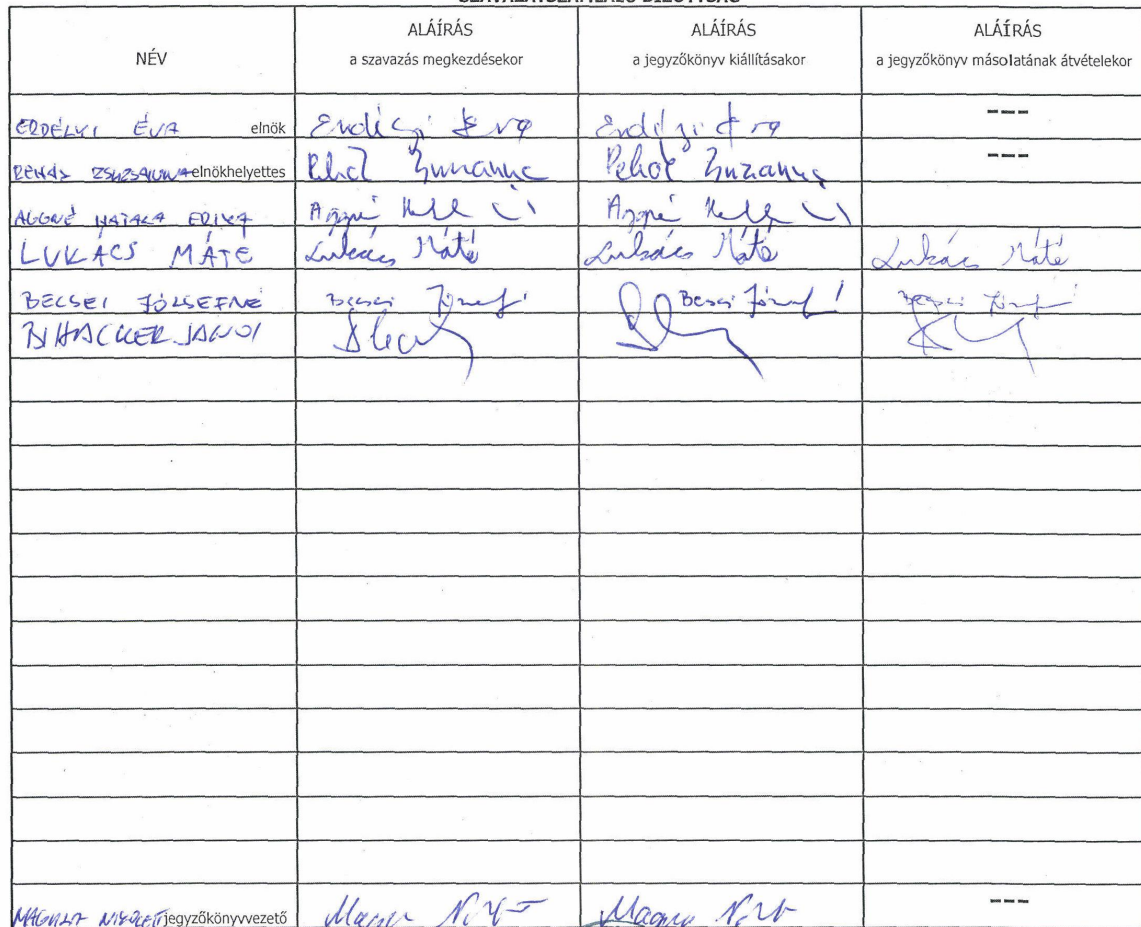 NÉV
ALÁÍRÁS
a szavazás megkezdésekor
ALÁÍRÁS
a jegyzőkönyv kiállításakor
ALÁÍRÁS
a jegyzőkönyv másolatának átvételekor
ERDÉLYI ÉVA elnök Erdélyi Éva Erdélyi Éva ---
ZSUZSANNA elnökhelyettes Zsuzsanna Zsuzsanna ---
AGGNÉ ERIKA Aggné Aggné
LUKÁCS MÁTÉ Lukács Máté Lukács Máté Lukács Máté
BECSEI JÓZSEFNÉ Becsei Józsefné Becsei Józsefné Becsei Józsefné
BIHACKER JANOS
MAGYAR NIKOLETT jegyzőkönyvvezető Magyar Magyar ---